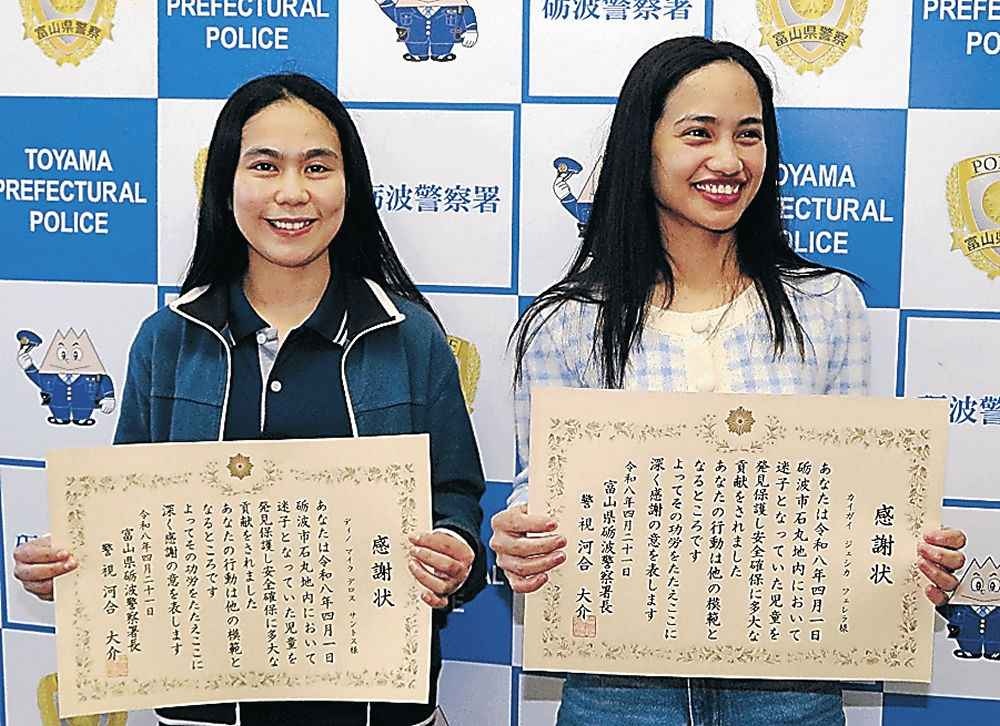 TOYAMA
PREFECTURAL
POLICE
砺波警察署
富山県警察
TOYAMA
PREFECTURAL
POLICE
感謝状
サントス様
あなたは令和八年四月一日
砺波市石丸地内において
迷子となっていた児童を
発見保護し安全確保に多大な
貢献をされました
あなたの行動は他の模範と
なるところです
よってその功労をたたえここに
深く感謝の意を表します
令和八年四月二十一日
富山県砺波警察署長
警視 河合 大介
感謝状
カイガイ ジェシカ フェレラ様
あなたは令和八年四月一日
砺波市石丸地内において
迷子となっていた児童を
発見保護し安全確保に多大な
貢献をされました
あなたの行動は他の模範と
なるところです
よってその功労をたたえここに
深く感謝の意を表します
令和八年四月二十一日
富山県砺波警察署長
警視 河合 大介